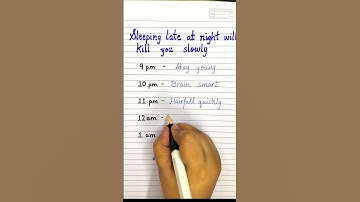 Sleeping late at night will
kill you slowly
9 pm - Stay young
10 pm - Brain smart
11 pm - Hairfall quickly
12 am -
1 am